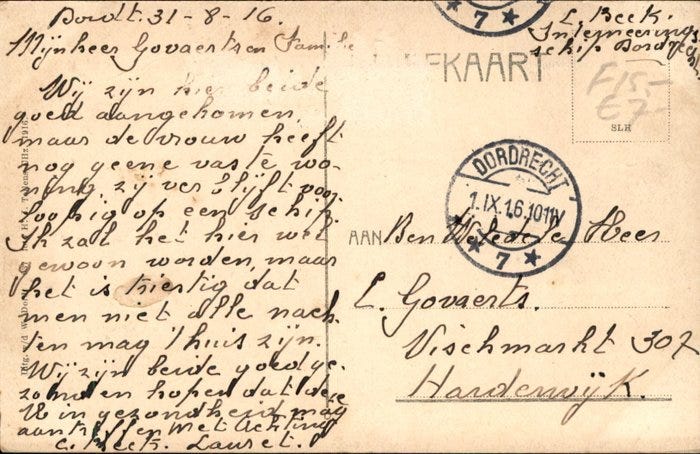 Dordt. 31-8-16.
Mijnheer Govaerts en Familie
Wij zijn hier beide
goed aangekomen,
maar de vrouw heeft
nog geene vaste wo-
ning, zij verblijft voor
loopig op een schip.
Ik zal het hier wel
gewoon worden, maar
het is triestig dat
men niet alle nach-
ten mag thuis zijn.
Wij zijn beide goed ge-
zond en hopen dat deze
U in gezondheid mag
aantreffen Met Achting
C. Beek. Lauret.
C. Beek.
Interneerings
schip Dordrecht
KAART
F15-
€7-
SLH
7
DORDRECHT
1.IX.16.10-11V
7
AAN
Den Weledele Heer
C. Govaerts.
Vischmarkt 307
Harderwijk.